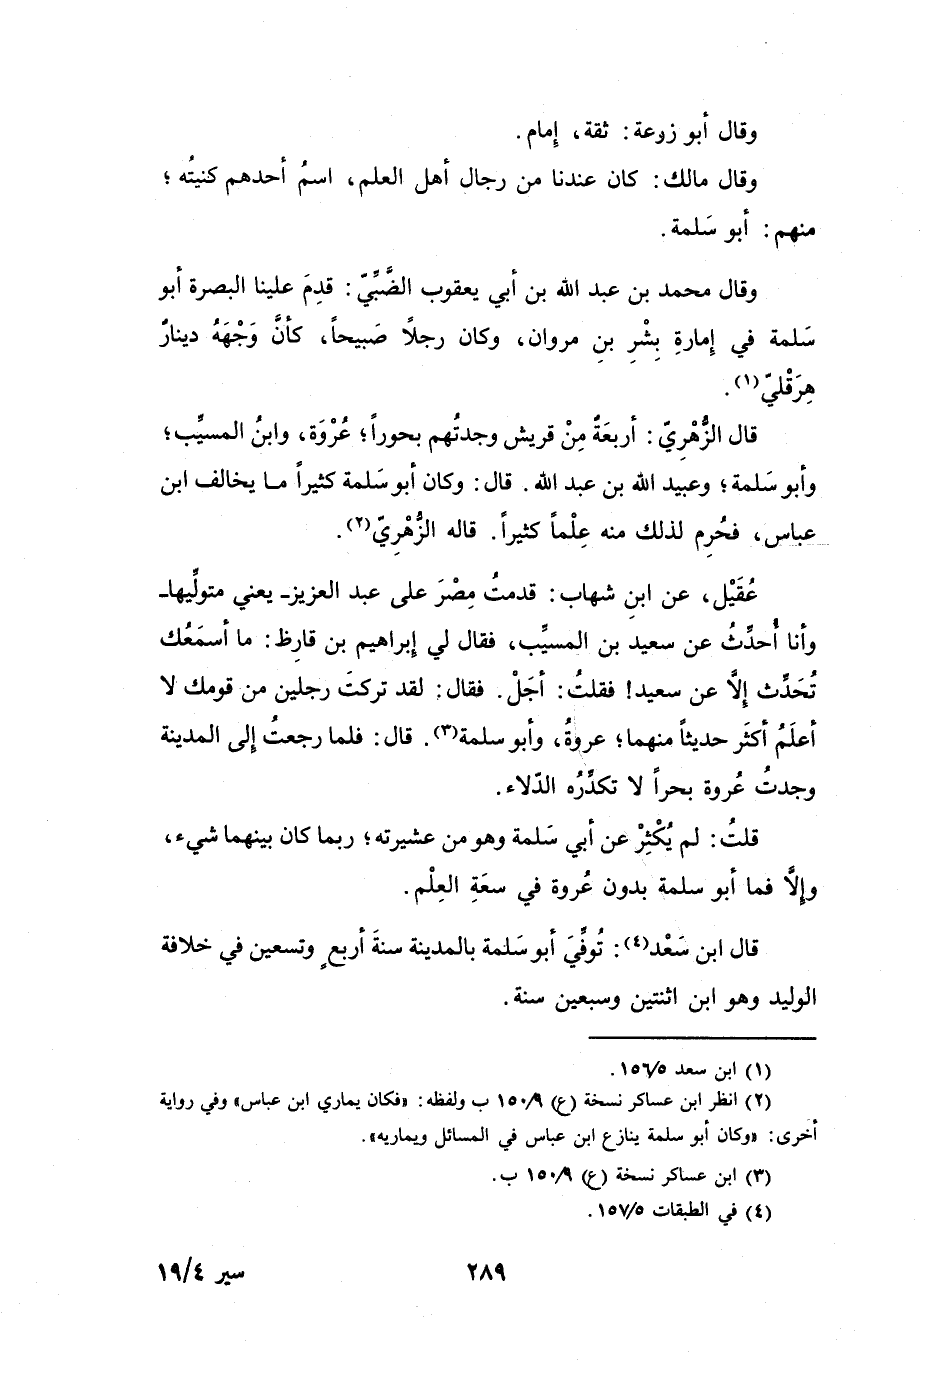 وقال أبو زرعة: ثقة، إمام.
وقال مالك: كان عندنا من رجال أهل العلم، اسمُ أحدهم كنيتُه؛
منهم: أبو سَلمة.
وقال محمد بن عبد الله بن أبي يعقوب الضَّبِّيّ: قدِمَ علينا البصرة أبو
سَلمة في إمارةِ بِشْرِ بنِ مروان، وكان رجلًا صَبيحاً، كأنَّ وَجْهَهُ دينارٌ
هِرَقْليّ(١).
قال الزُّهْرِيّ: أربعَةٌ مِنْ قريش وجدتُهم بحوراً؛ عُرْوَة، وابنُ المسيِّب؛
وأبو سَلمة؛ وعبيد الله بن عبد الله. قال: وكان أبو سَلمة كثيراً ما يخالف ابن
عباس، فحُرِم لذلك منه عِلْماً كثيراً. قاله الزُّهْرِيّ(٢).
عُقَيْل، عن ابنِ شهاب: قدمتُ مِصْرَ على عبد العزيز۔ يعني متولِّيها۔
وأنا أُحدِّثُ عن سعيد بن المسيِّب، فقال لي إبراهيم بن قارِظ: ما أسمَعُك
تُحَدِّث إلَّا عن سعيد! فقلتُ: أجَلْ. فقال: لقد تركتَ رجلين من قومك لا
أعلَمُ أكثَر حديثاً منهما؛ عروةُ، وأبو سلمة(٣). قال: فلما رجعتُ إلى المدينة
وجدتُ عُروة بحراً لا تكدِّرُه الدّلاء.
قلتُ: لم يُكْثِرْ عن أبي سَلمة وهو من عشيرته؛ ربما كان بينهما شيء،
وإلَّا فما أبو سلمة بدون عُروة في سعَةِ العِلْم.
قال ابن سَعْد(٤): تُوفِّيَ أبو سَلمة بالمدينة سنةَ أربعٍ وتسعين في خلافة
الوليد وهو ابن اثنتين وسبعين سنة.
(١) ابن سعد ١٥٦/٥.
(٢) انظر ابن عساكر نسخة (ع) ١٥٠/٩ ب ولفظه: «فكان يماري ابن عباس» وفي رواية
أخرى: «وكان أبو سلمة ينازع ابن عباس في المسائل ويماريه».
(٣) ابن عساكر نسخة (ع) ١٥٠/٩ ب.
(٤) في الطبقات ١٥٧/٥.
٢٨٩
سير ١٩/٤